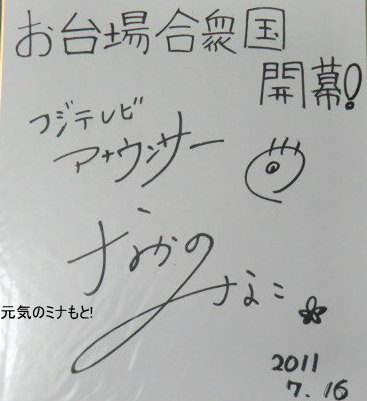 お台場合衆国
開幕!
フジテレビ
アナウンサー
なかの
なこ
元気のミナもと!
2011
7.16